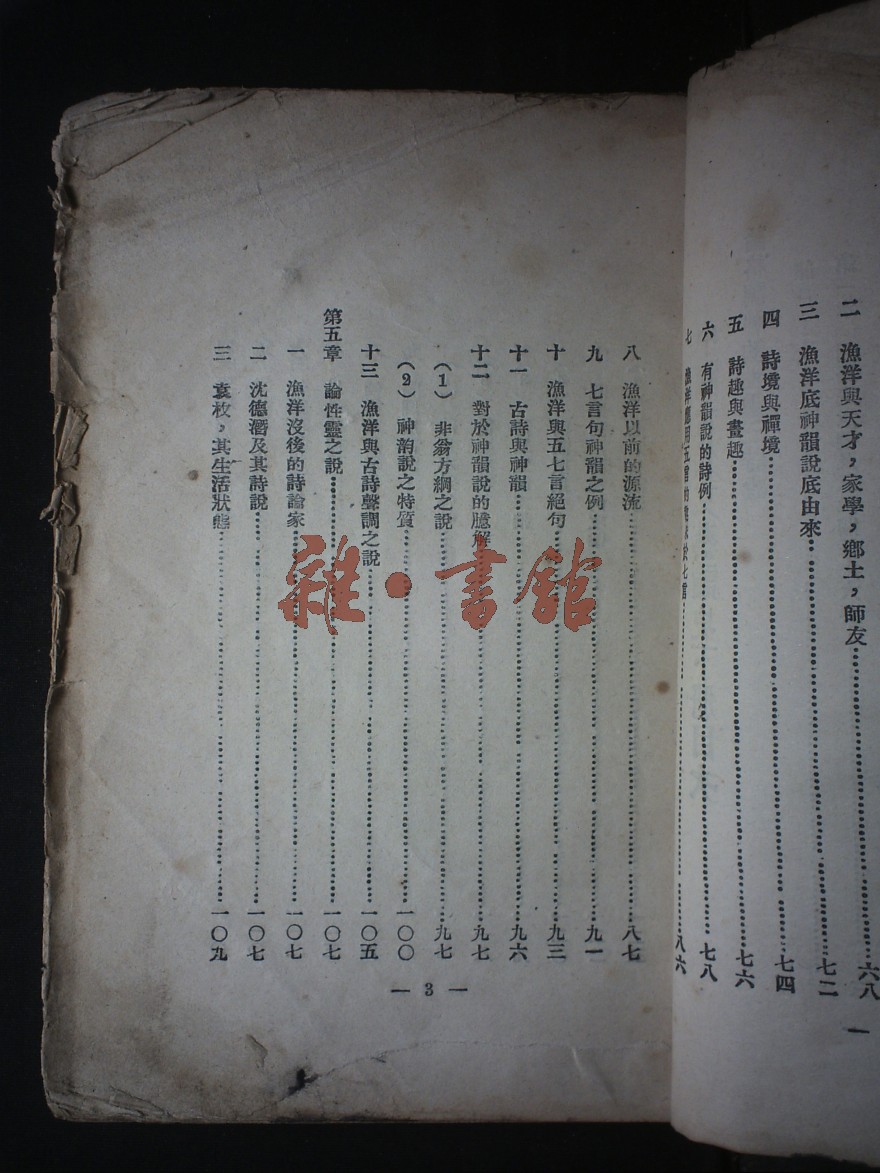 二　漁洋與天才，家學，鄉土，師友……六八
三　漁洋底神韻說底由來……七二
四　詩境與禪境……七四
五　詩趣與畫趣……七六
六　有神韻說的詩例……七八
七　漁洋應用五言的……於七言……八六
八　漁洋以前的源流……八七
九　七言句神韻之例……九一
十　漁洋與五七言絕句……九三
十一　古詩與神韻……九六
十二　對於神韻說的臆解……九七
(1)　非翁方綱之說……九七
(2)　神韵說之特質……一〇〇
十三　漁洋與古詩聲調之說……一〇五
第五章　論性靈之說……一〇七
一　漁洋沒後的詩論家……一〇七
二　沈德潛及其詩說……一〇七
三　袁枚，其生活狀態……一〇九
— 3 —
雜·書館